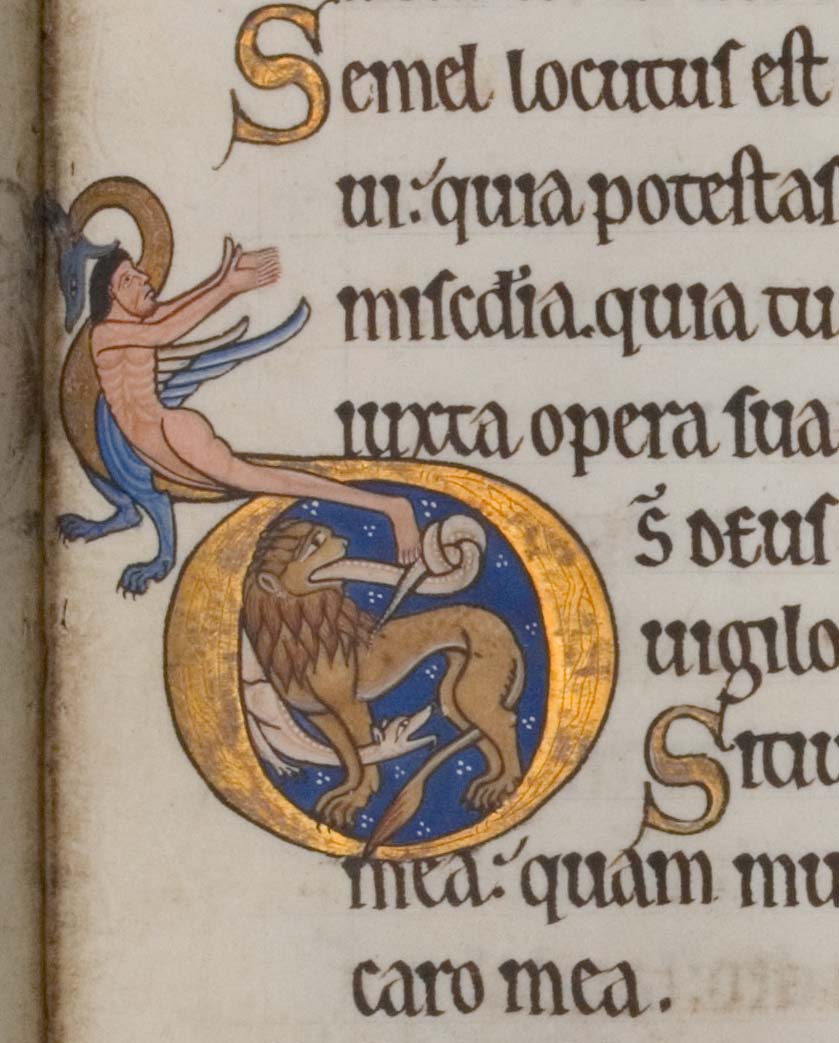 Semel locutus est
ui: quia potestas
misc̄dia. quia tu
iuxta opera sua
DS̄ DEUS
uigilo
Sitiu
mea: quam mu
caro mea.